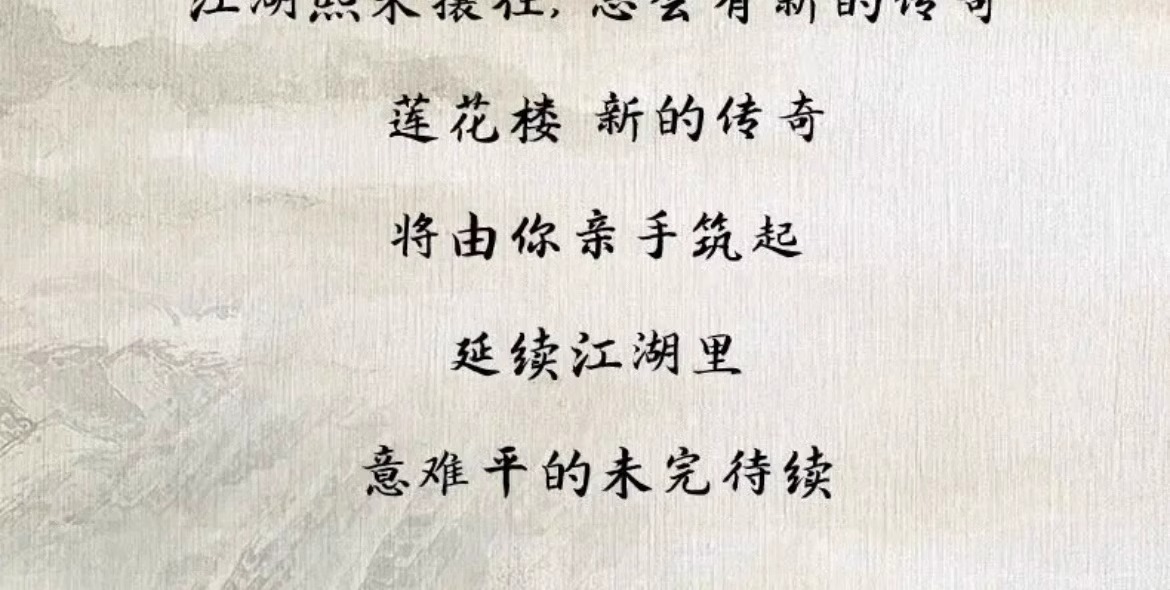 江湖熙来攘往, 总会有新的传奇
莲花楼 新的传奇
将由你亲手筑起
延续江湖里
意难平的未完待续